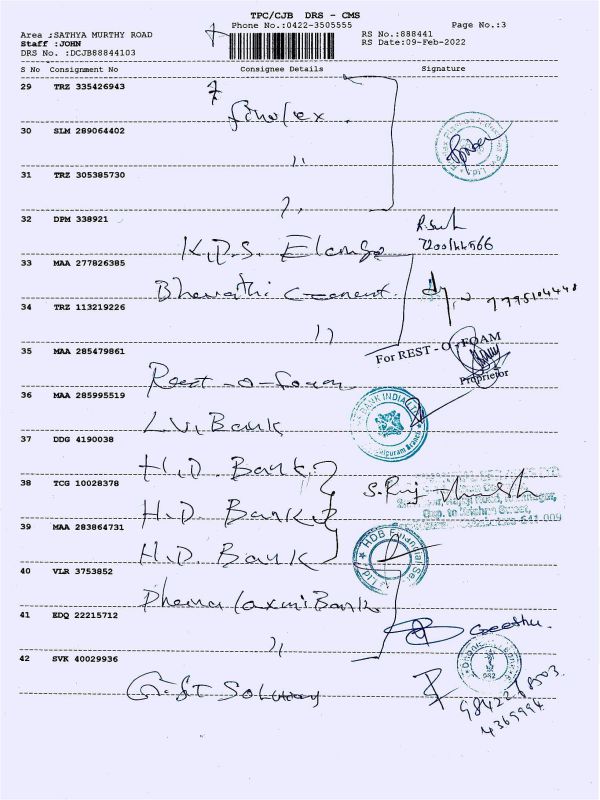 TPC/CJB DRS - CMS
Phone No.:0422-3505555 Page No.:3
Area :SATHYA MURTHY ROAD RS No.:888441
Staff :JOHN RS Date:09-Feb-2022
DRS No. :DCJB88844103
S No Consignment No Consignee Details Signature
29 TRZ 335426943
Finolex
30 SLM 289064402
,,
31 TRZ 305385730
,,
32 DPM 338921
K.P.S. Elango
33 MAA 277826385
Bharathi Cement
34 TRZ 113219226
,,
For REST-O-FOAM
Proprietor
35 MAA 285479861
Rest-o-foam
36 MAA 285995519
L.V. Bank
BANK INDIA
37 DDG 4190038
H.D. Bank
38 TCG 10028378
H.D. Bank
39 MAA 283864731
H.D. Bank
HDB Financial
641 009
40 VLR 3753852
Dhana laxmi Bank
41 EDQ 22215712
,,
Geetha.
42 SVK 40029936